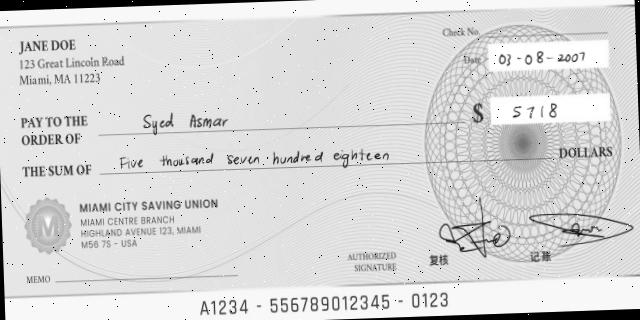 JANE DOE
123 Great Lincoln Road
Miami, MA 11223
Check No.
Date 03-08-2007
PAY TO THE
ORDER OF Syed Asmar
$ 5718
THE SUM OF Five thousand seven hundred eighteen DOLLARS
M
MIAMI CITY SAVING UNION
MIAMI CENTRE BRANCH
HIGHLAND AVENUE 123, MIAMI
M56 7S - USA
AUTHORIZED
SIGNATURE
复核
记账
MEMO
A1234 - 556789012345 - 0123